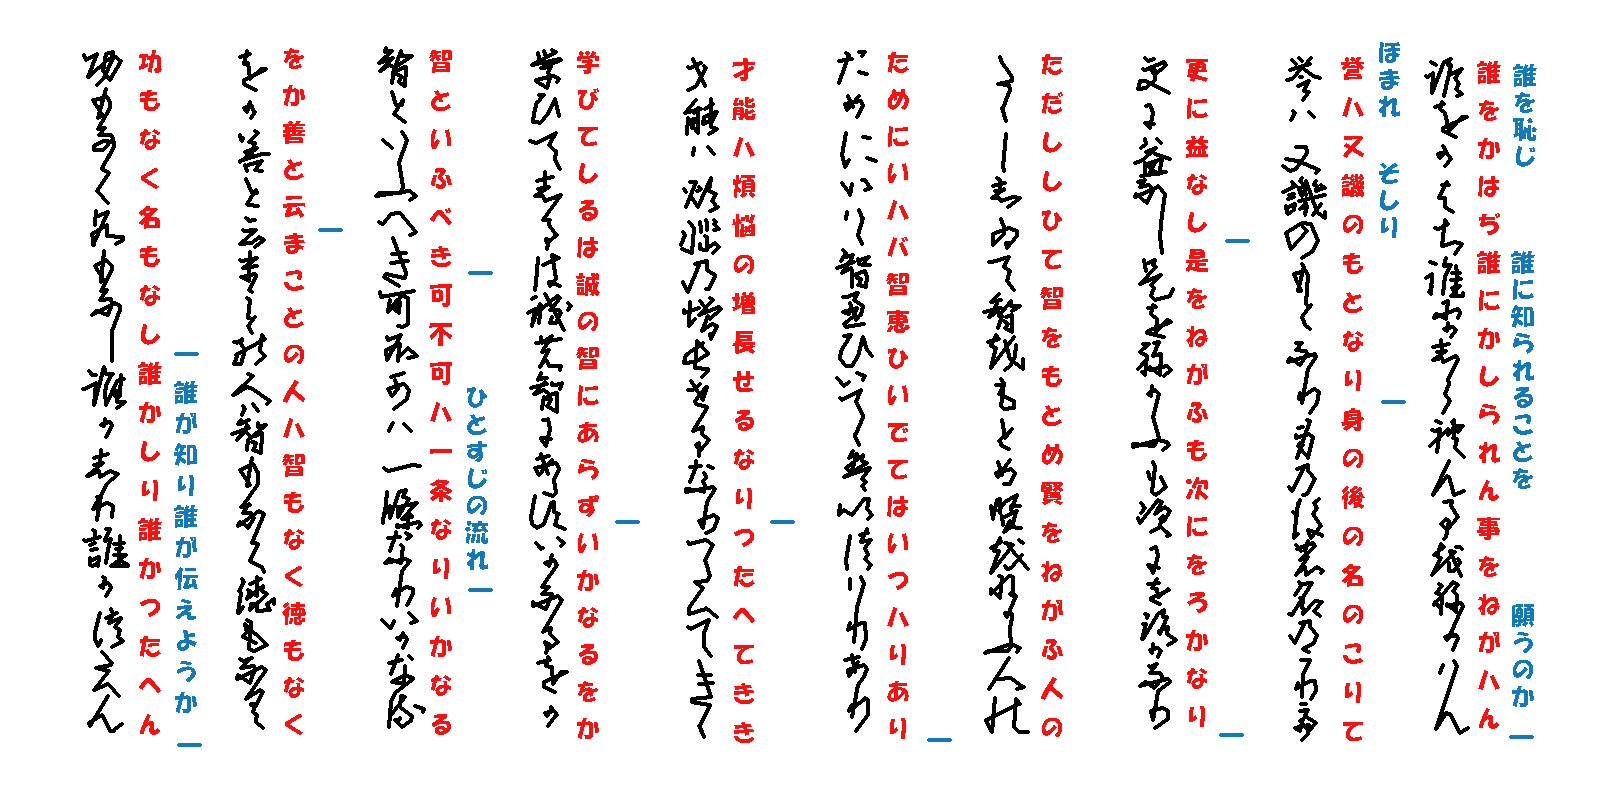 誰を恥じ 誰に知られることを 願うのか
誰をかはぢ誰にかしられん事をねがハん
ほまれ そしり
誉ハ又譏のもとなり身の後の名のこりて
更に益なし是をねがふも次にをろかなり
ただししひて智をもとめ賢をねがふ人の
ためにいハバ智恵ひいでてはいつハりあり
才能ハ煩悩の増長せるなりつたへてきき
学びてしるは誠の智にあらずいかなるをか
ひとすじの流れ
智といふべき可不可ハ一条なりいかなる
をか善と云まことの人ハ智もなく徳もなく
誰が知り誰が伝えようか
功もなく名もなし誰かしり誰かつたへん